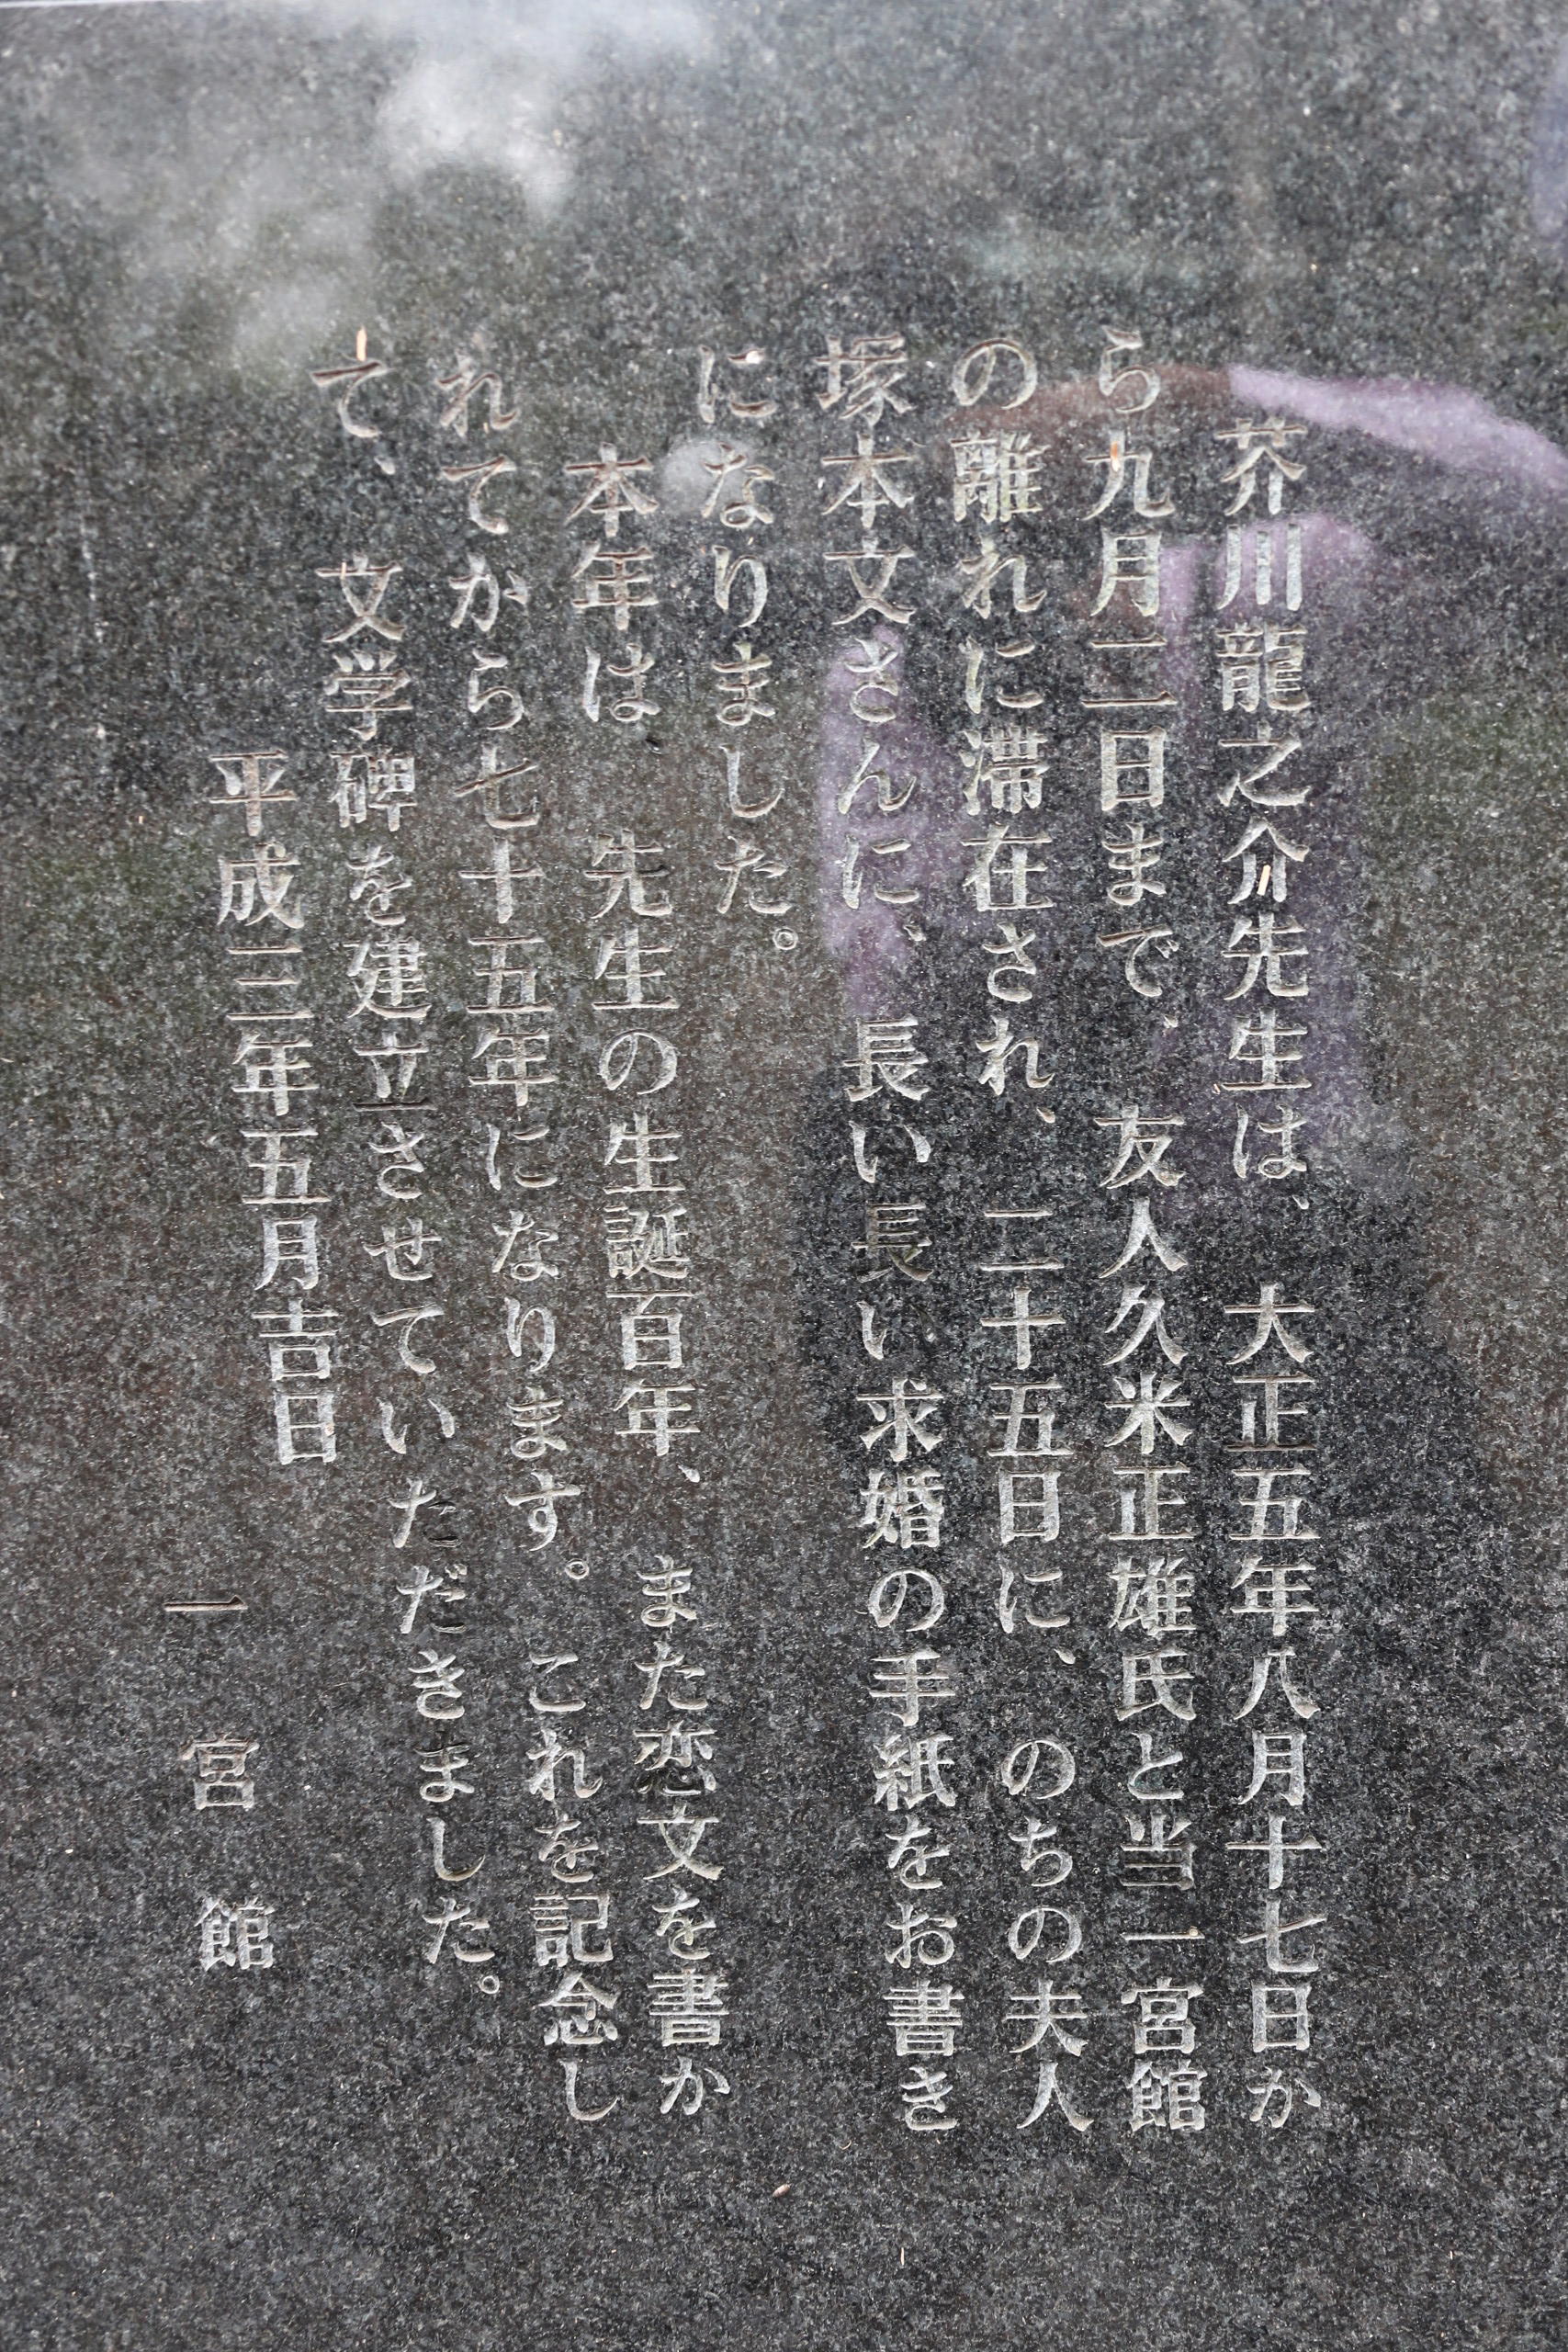 芥川龍之介先生は、大正五年八月十七日か
ら九月二日まで、友人久米正雄氏と当一宮館
の離れに滞在され、二十五日に、のちの夫人
塚本文さんに、長い長い求婚の手紙をお書き
になりました。
本年は 先生の生誕百年、また恋文を書か
れてから七十五年になります。これを記念し
て、文学碑を建立させていただきました。
平成三年五月吉日
一宮館